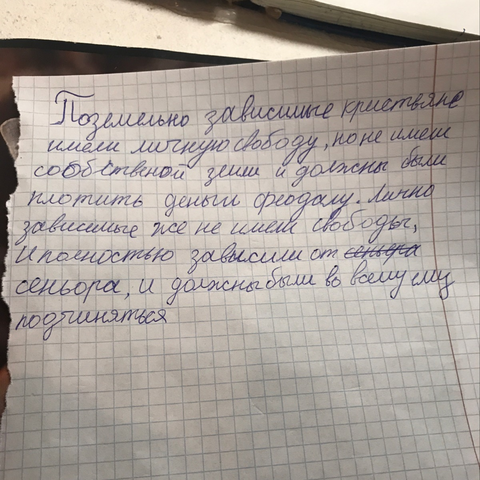 Поземельно зависимые кристьяне
имеи личную свободу, но не имеи
собствной земли и должны были
плотить деньги феодалу. Лично
зависимые же не имеи свободы,
и полностью зависили от сеньёра
сеньора, и должны были во всём ему
подчиняться